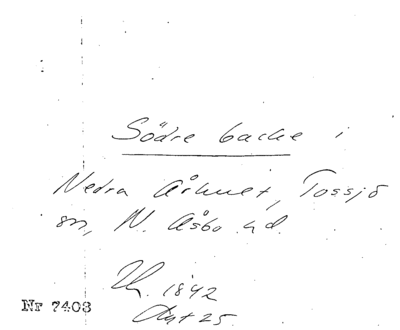 Södre backe i
Nedra Århult, Tossjö
sn, N. Åsbo hd.
Th. 1842
Akt 25
Nr 7408